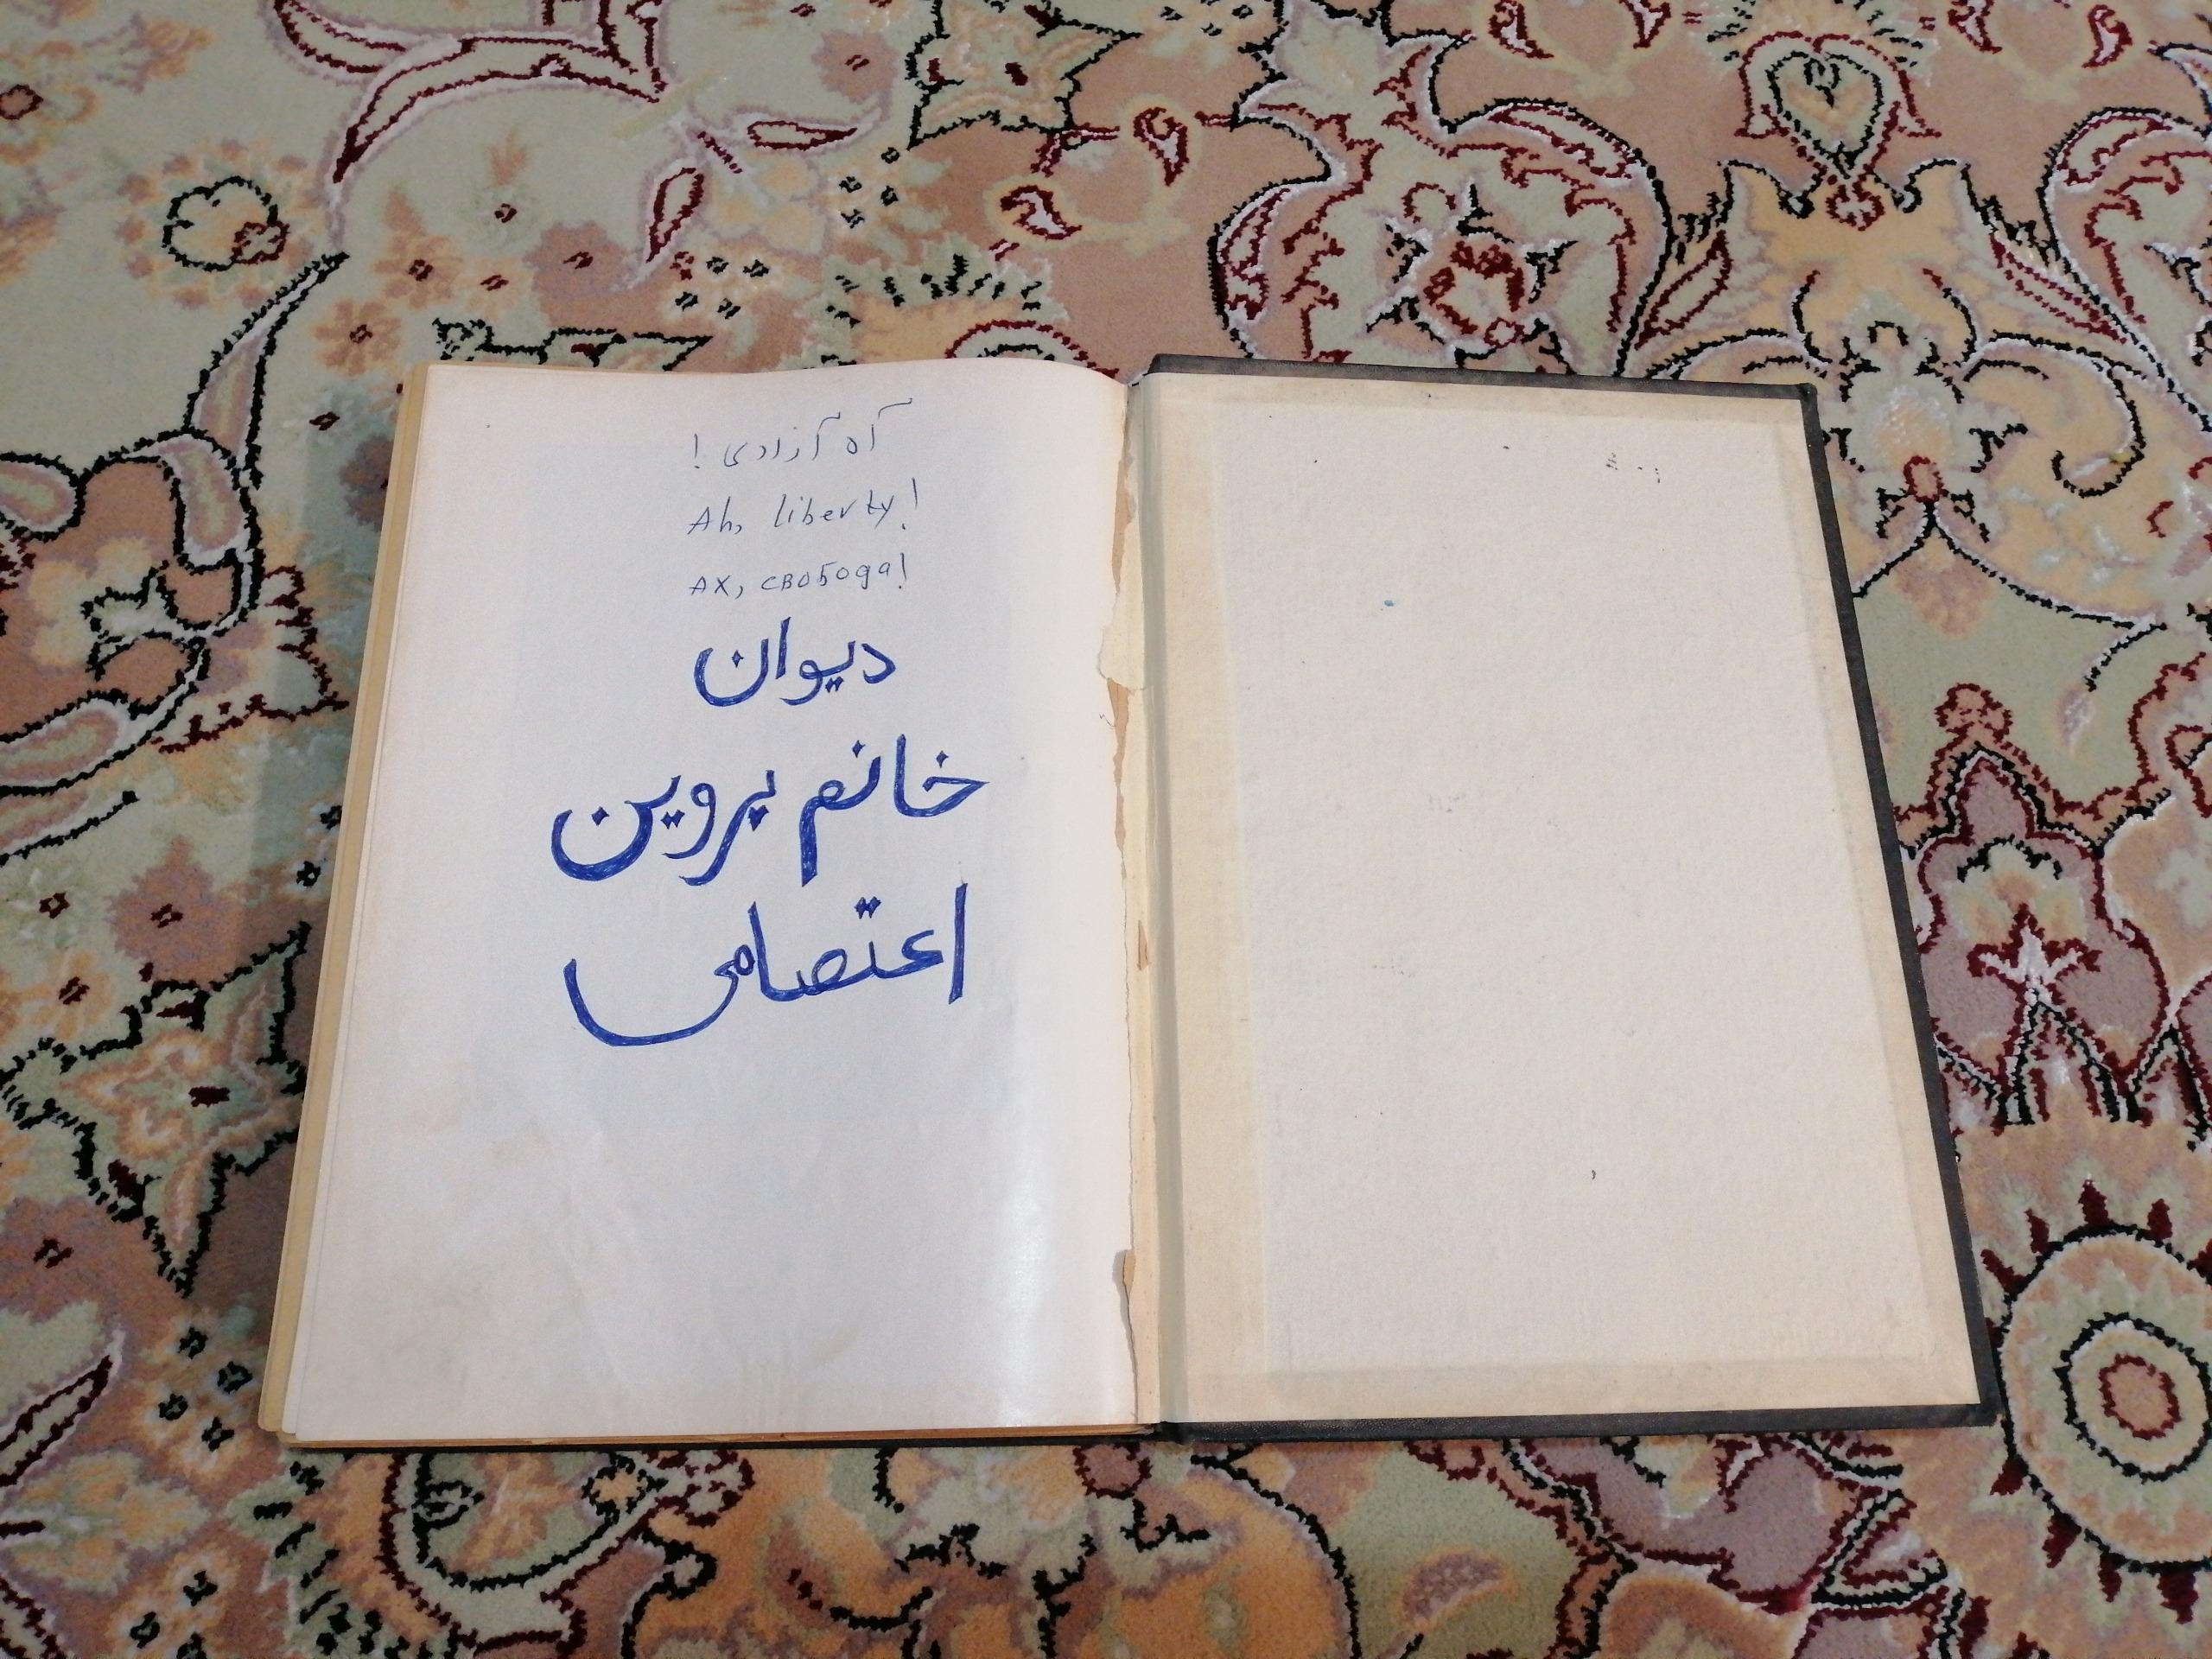 آه آزادی !
Ah, liberty!
AX, свобода!
دیوان
خانم پروین
اعتصامی